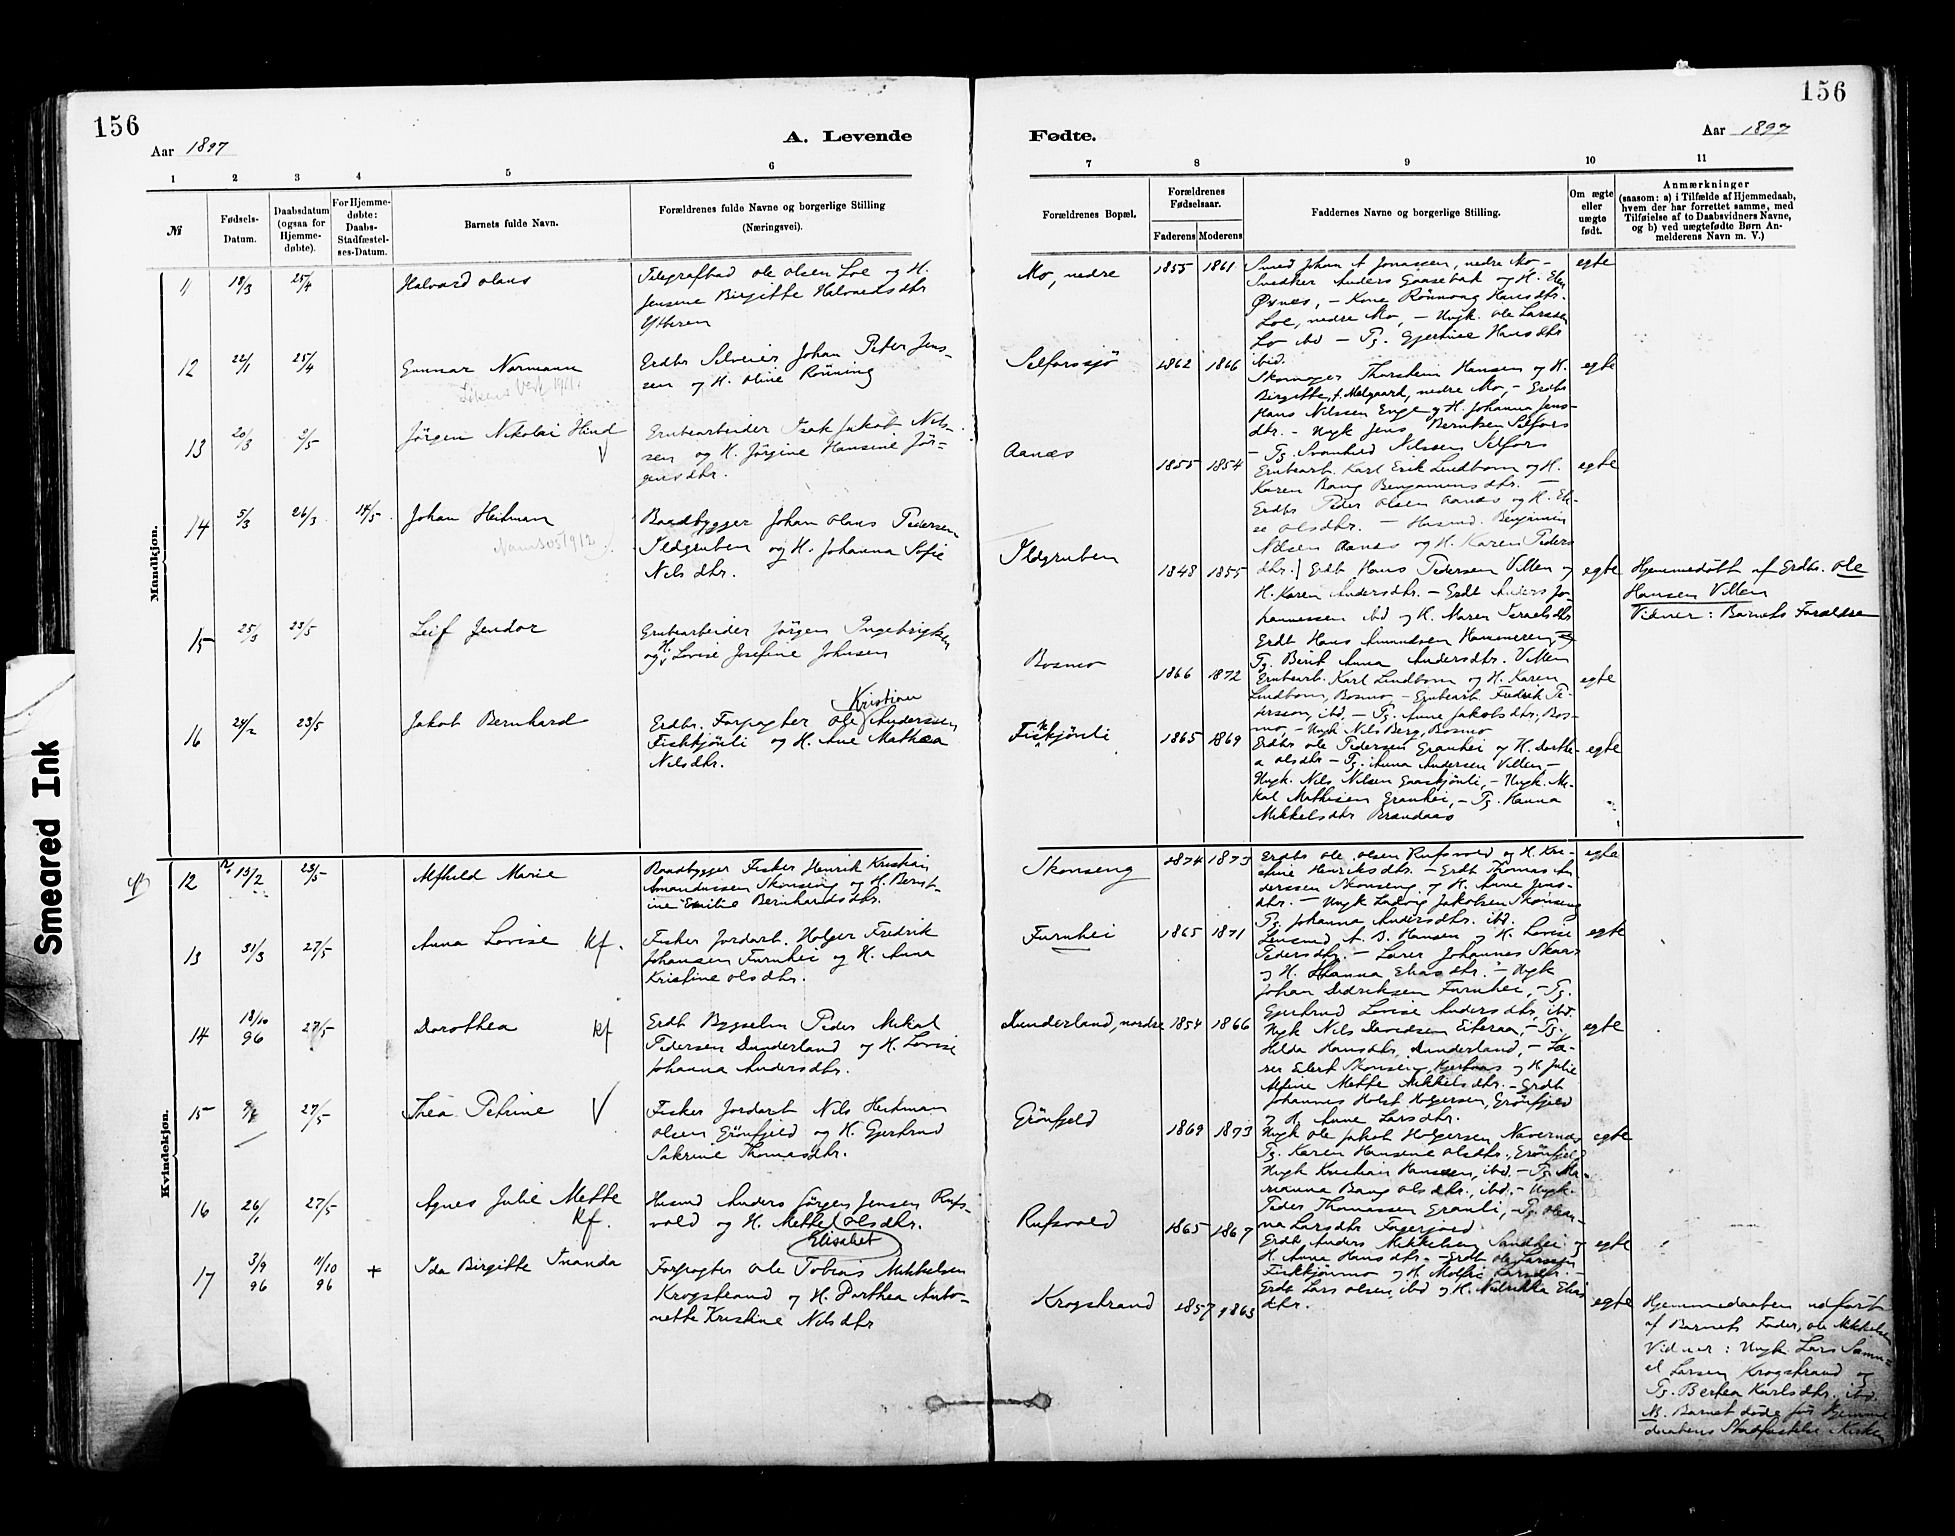 156
156
Aar 1897
A. Levende
Fødte.
Aar 1897
1 2 3 4 5 6 7 8 9 10 11
№
Fødsels-Datum.
Daabsdatum (ogsaa for Hjemme-døbte).
For Hjemme-døbte: Daabs-Stadfæstel-ses-Datum.
Barnets fulde Navn.
Forældrenes fulde Navne og borgerlige Stilling (Næringsvei).
Forældrenes Bopæl.
Forældrenes Fødselsaar.
Faderens Moderens
Faddernes Navne og borgerlige Stilling.
Om ægte eller uægte født.
Anmærkninger
(saasom: a) i Tilfælde af Hjemmedaab, hvem der har forrettet samme, med Tilføielse af to Daabsvidners Navne, og b) ved uægtefødte Børn An-melderens Navn m. V.)
Mandkjøn.
11 18/3 25/4 Halvard Olaus
Telegrafbud Ole Olsen Loe og H.
Jensine Birgitte Halvardsdtr
Ytteren
Mo, nedre 1855 1861
Smed Johan A Jonassen, nedre Mo –
Snedker Anders Gaasebak og H. Elen
Øxnes, – Kone Rönnaug Hansdtr.
Loe, nedre Mo, – Ungk. Ole Larssen
Lo ibd – Pg. Gjertine Hansdtr
ibid.
egte
12 22/1 25/4 Gunnar Normann
Erdbr Selveier Johan Peter Jens-
sen og H. Oline Rönning
Selforssjø 1862 1866
Skomager Thorstein Hansen og H.
Birgitte, f. Melgaard, nedre Mo, – Erdbr
Hans Nilssen Enge og H. Johanna Jens-
dtr. – Ungk Jens Berntsen Selfors
– Pg. Svanhild Nilssen Selfors
egte
13 20/3 9/5 Jörgen Nikolai Hind V
Grubearbeider Isak Jakob Nils-
sen og H. Jörgine Hansine Jör-
gensdtr.
Aanæs 1855 1854
Grubearb. Karl Erik Lindbom og H.
Karen Bang Benjaminsdtr. –
Erdbr Peder Olsen Aanæs og H. El-
se Olsdtr. – Husmd. Benjamin
Nilsen Aanæs og H. Karen Peders
dtr.
egte
14 5/3 26/3 14/5 Johan Heitmann
Namsos 1912
Baadbygger Johan Olaus Pedersen
Ildgruben og H. Johanna Sofie
Nilsdtr.
Ildgruben 1848 1855
Erdb Hans Pedersen Villen og
H. Karen Andersdtr. – Erdb Anders Jo-
hannessen ibd og H. Maren Israelsdtr
Erdb Hans Amundsen Hammeren og
Pg. Berit Anna Andersdtr. Villen
egte
Hjemmedöbt af Erdbr. Ole
Hansen Villen
Vidner: Barnets Forældre
15 25/3 23/5 Leif Jendor
Grubearbeider Jörgen Ingebrigtsen
og H. Lovise Josefine Johnsen
Bosmo 1866 1872
Grubearb. Karl Lindbom og H. Karen
Lindbom, Bosmo – Grubearb. Fredrik Pe-
dersen, ibd. – Pg. Anne Jakobsdtr, Bos-
mo, – Ungk Nils Berg, Bosmo
egte
16 24/2 23/5 Jakob Bernhard
Kristian
Erdbr. Forpagter Ole Anderssen
Fiskkjönli og H. Ane Mathea
Nilsdtr.
Fiskkjönli 1865 1869
Erdbr Ole Pedersen Granhei og H. Dorthe-
a Olsdtr – Pg. Anna Andersen Villen –
Ungk. Nils Nilsen Gaaskjönli, – Ungk. Mi-
kal Mathisen Granhei, – Pg. Hanna
Mikkelsdtr Brandaas
egte
Kvindekjøn.
12 13/2 23/5 Alfhild Marie
Baadbygger Fisker Henrik Kristian
Amandussen Skonseng og H. Bernt-
ine Emilie Bernhardsdtr.
Skonseng 1874 1873
Erdbr Ole Olsen Rufsvold og H. Kri-
stine Henriksdtr. – Erdb Thomas An
derssen Skonseng og H. Anne Jens-
dtr. – Ungk Ludvig Jakobsen Skonseng
Pg. Johanna Andersdtr. ibd.
egte
13 31/3 27/5 Anna Lovise kf.
Fisker Jordarb. Holger Fredrik
Johansen Furuhei og H. Anna
Kristine Olsdtr.
Furuhei 1865 1871
Lensmd A. B. Hansen og H. Lovise
Pedersdtr. – Lærer Johannes Skaar
og H. Hanna Eliasdtr. – Ungk
Johan Dedriksen Furuhei, – Pg.
Gjertrud Lovise Andersdtr, ibd.
egte
14 18/10 96 27/5 Dorothea kf
Erdb Bygselm Peder Mikal
Pedersen Dunderland og H. Lovise
Johanna Andersdtr.
Dunderland, nordre 1854 1866
Ungk Nils Davidsen Eiteraa, – Pg.
Hilda Hansdtr, Dunderland, – Læ-
rer Elert Skonseng, og H Julie
Alfine Mette Mikkelsdtr. – Erdb
Johannes Holst Holgersen, Grönfjeld
og H. Anne Larsdtr.
egte
15 27/5 Thea Petrine V
Fisker Jordarb Nils Heitman
Olsen Grönfjeld og H. Gjertrud
Sakrine Thomasdtr.
Grönfjeld 1869 1873
Ungk Ole Jakob Holgersen, Nævernes
Pg. Karen Hansine Olsdtr., Grönfjeld
Ungk Kristian Hanssen, ibd. – Pg. Ma-
rianna Bang Olsdtr., ibd. – Ungk.
Peder Thomassen Granli,
na Larsdtr
egte
16 26/1 27/5 Agnes Julie Mette kf.
Husmd Anders Jörgen Jensen Rufs-
vold og H. Mette Olsdtr.
Elisabet
Rufsvold 1865 1867
Erdb Anders Mikkelsen Sandhei og
H. Anna Hansdtr. – Erdb Ole Larssen
Fiskkjönmo og H. Larsdtr. –
Erdb Lars Olsen, ibd og H. Elias
dtr.
egte
17 3/9 96 11/10 96 + Ida Birgitte Amanda
Forpagter Ole Tobias Mikkelsen
Krogstrand og H. Dorthea Anto-
nette Kristine Nilsdtr
Krogstrand 1857 1863
egte
Hjemmedaaben udfört
af Barnets Fader, Ole Mikkelsen
Vidner: Ungk Lars Samu-
el Larsen Krogstrand og
Pg. Berthea Karlsdtr. ibd.
NB. Barnet döde för Hjemme-
daabens Stadfæstelse i Kirken
Smeared Ink